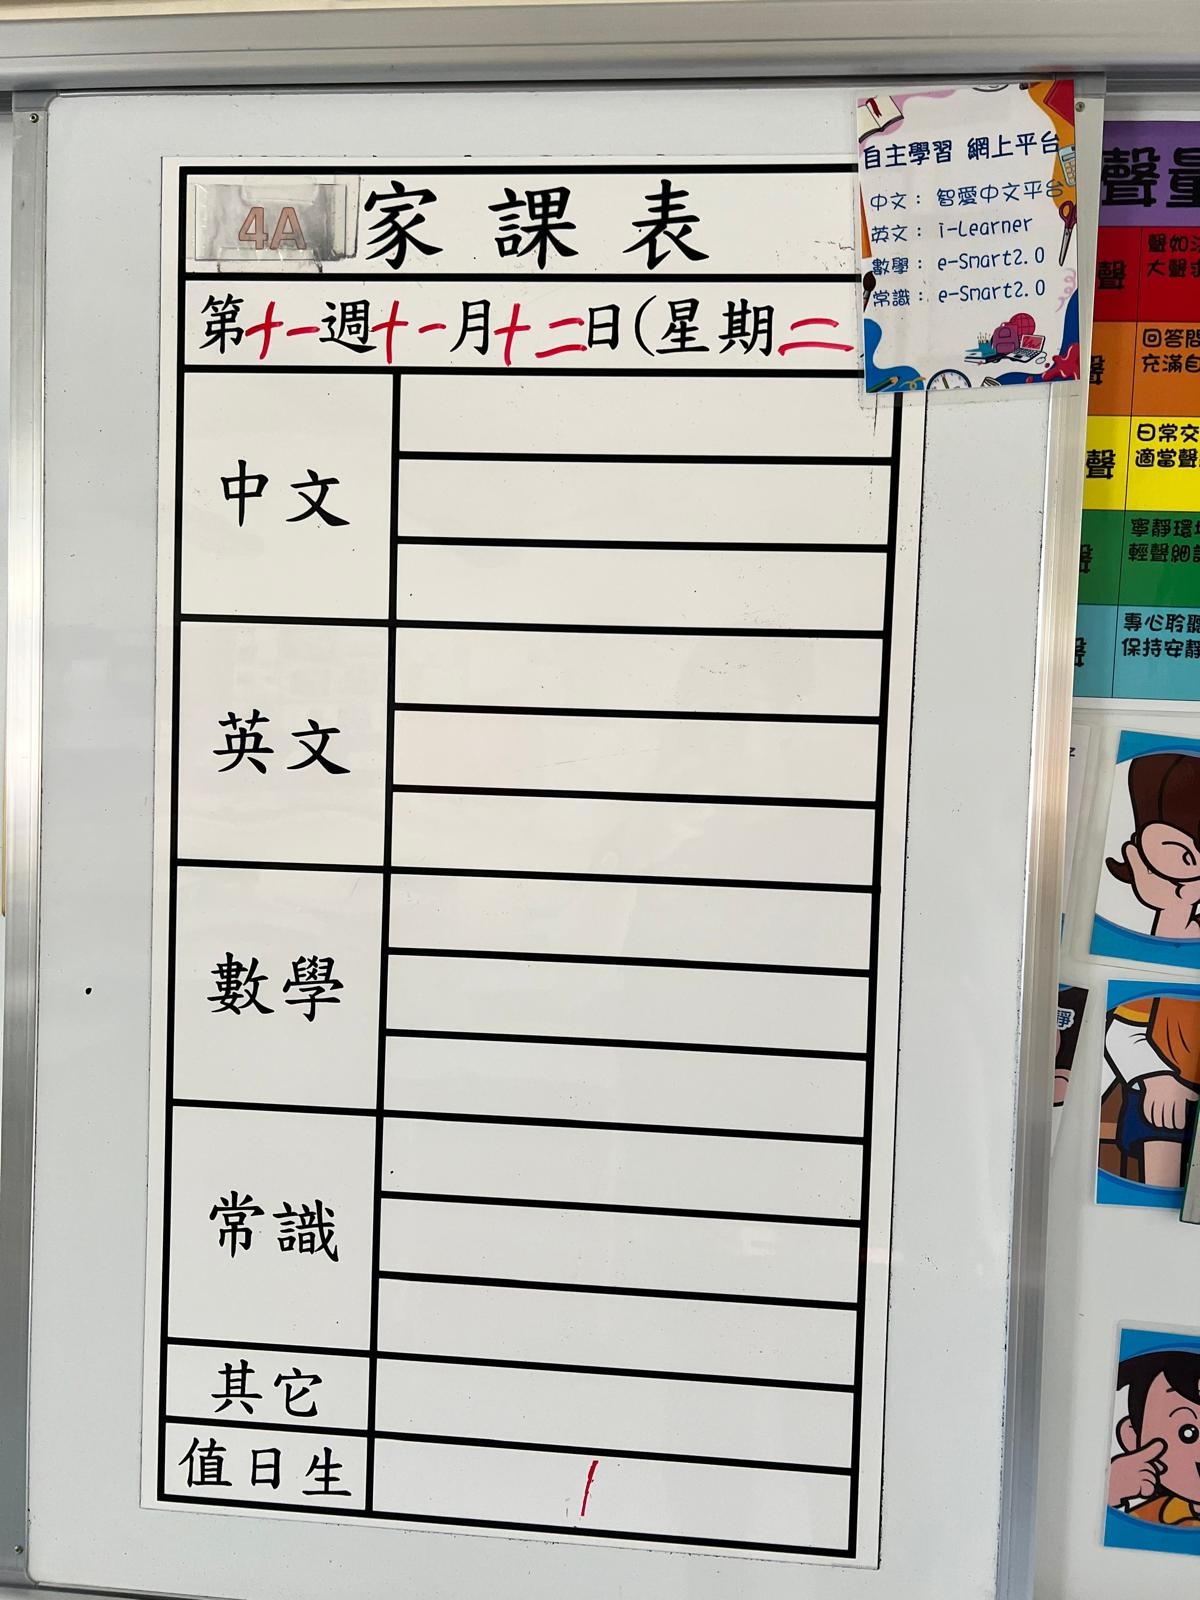 4A 家課表
第十一週十一月十二日(星期二
中文
英文
數學
常識
其它
值日生 1
自主學習 網上平台
中文： 智愛中文平台
英文： i-Learner
數學： e-Smart2.0
常識： e-Smart2.0
聲量
聲
聲如
大聲
聲
回答
充滿
聲
日常交
適當聲
寧靜環
輕聲細
專心聆聽
保持安靜
靜